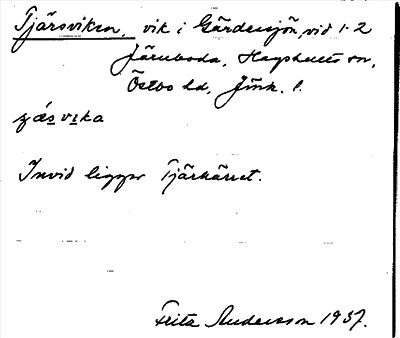 Tjärsviken, vik i Gärdessjön, vid 1-2
Järnboda, Hagshults sn,
Östbo hd, Jönk. l.
ɕæsvɪka
Invid ligger Tjärkärret.
Fritz Andersson 1937.